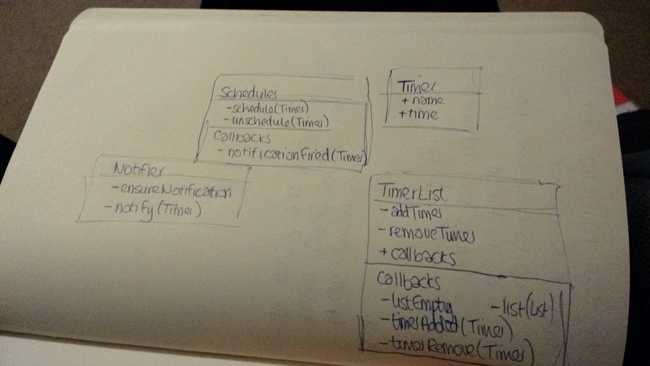 Scheduler
- schedule(Timer)
- unschedule(Timer)
Callbacks
- notificationFired(Timer)
Timer
+ name
+ time
Notifier
- ensureNotification
- notify(Timer)
TimerList
- addTimer
- removeTimer
+ callbacks
Callbacks
- listEmpty - list(List)
- timerAdded(Timer)
- timerRemove(Timer)